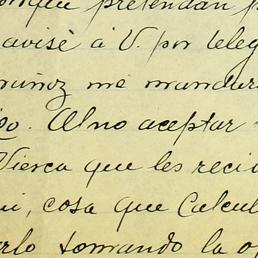 pretendan
avisé á V. por teleg
me mandara
Al no aceptar
Vierca que les reci
ui, cosa que Calcul
erlo tomando la o